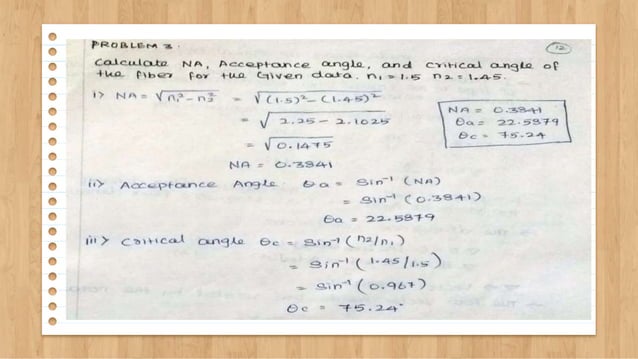 PROBLEM 3.
12
Calculate NA, Acceptance angle, and critical angle of
the fiber for the Given data. n₁ = 1.5 n₂ = 1.45.
i> NA = √n₁² - n₂² = √(1.5)² - (1.45)²
NA = 0.3841
θa = 22.5879
θc = 75.24
= √2.25 - 2.1025
= √0.1475
NA = 0.3841
ii> Acceptance Angle θa = Sin⁻¹ (NA)
= Sin⁻¹ (0.3841)
θa = 22.5879
iii> Critical angle θc = Sin⁻¹ (n₂/n₁)
= Sin⁻¹ (1.45/1.5)
= Sin⁻¹ (0.967)
θc = 75.24°